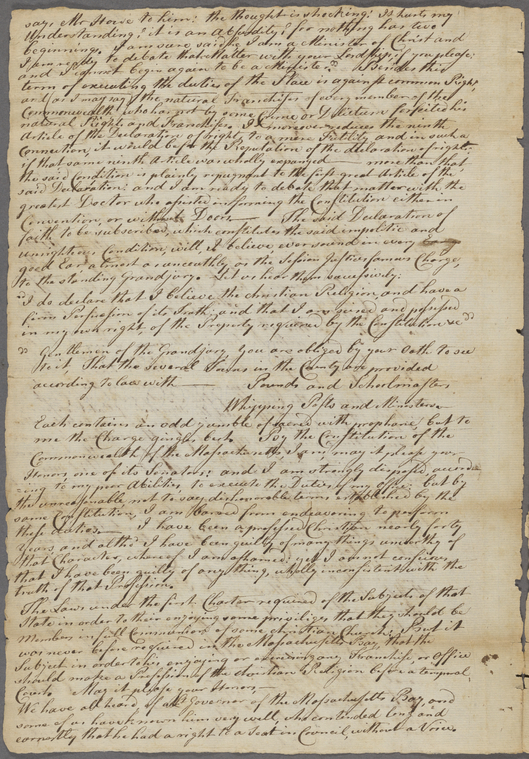 says Mr Howe to him; the thought is shocking: It hurts my
Understanding; it is an Absurdity; for nothing has two
beginnings. I am sure said he I am a Minister of Christ and
I am ready to debate that Matter with your Lordship if you please;
and I cannot begin again to be a Minister." Besides this
term of executing the duties of the Place is against common Right,
and as I may say the natural Franchise of every member of the
Commonwealth, who has not by some Crime or Defecture forfeited his
natural Rights and Franchises. It moreover reduces the ninth
Article of the Declaration of rights to a mere Futility, and in such a
Connection, it would be for the Reputation of the declaration of rights,
if that same ninth Article was wholly expunged more than that
the said Condition is plainly repugnant to the first great Article of the
said Declaration: and I am ready to debate that matter with the
greatest Doctor who assisted in framing the Constitution either in
Convention or without Doors. The said Declaration of
faith to be subscribed, which constitutes the said impolitic and
unrighteous Condition, will, I believe ever sound in every
good Ear almost as uncouthly as the Session Justice's famous Charge,
to the standing Grand jury. Let us hear them successively.
"I do declare that I believe the christian Religion and have a
firm Perswasion of its Truth; and that I am seized and possessed
in my own right of the Property required by the Constitution &c"
"Gentlemen of the Grand jury You are obliged by your Oath to see
to it, that the several Towns in the County are provided
according to law with Pounds and Schoolmasters
Whipping Posts and Ministers
Each contains an odd jumble of sacred with prophane; but to
me the Charge jingles best. By the Constitution of the
Commonwealth of the Massachusetts I am, may it please your
Honors one of its Senators; and I am strongly disposed accord-
ing to my poor Abilities to execute the Duties of my Office; but by
the unreasonable, not to say dishonorable terms established by the
same Constitution, I am barred from endeavoring to perform
these duties. I have been a professed Christian nearly forty
Years, and altho' I have been guilty of many things unworthy of
that Character, whereof I am ashamed; yet I am not conscious
that I have been guilty of any thing, wholly inconsistent with the
truth of that Profession.
The Laws under the first Charter required of the Subjects of that
State in order to their enjoying some priviliges that they should be
Members in full Communion of some christian Church. But it
was never before required in the Massachusetts Bay, that the
Subject in order to his enjoying or exercising any Franchise or Office
should make a Profession of the christian Religion before a temporal
Court. May it please your Honors
We have all heard, of a Lt Governor of the Massachusetts Bay, and
some of us have known him very well, who contended long and
earnestly that he had a right to a Seat in Council, without a Voice